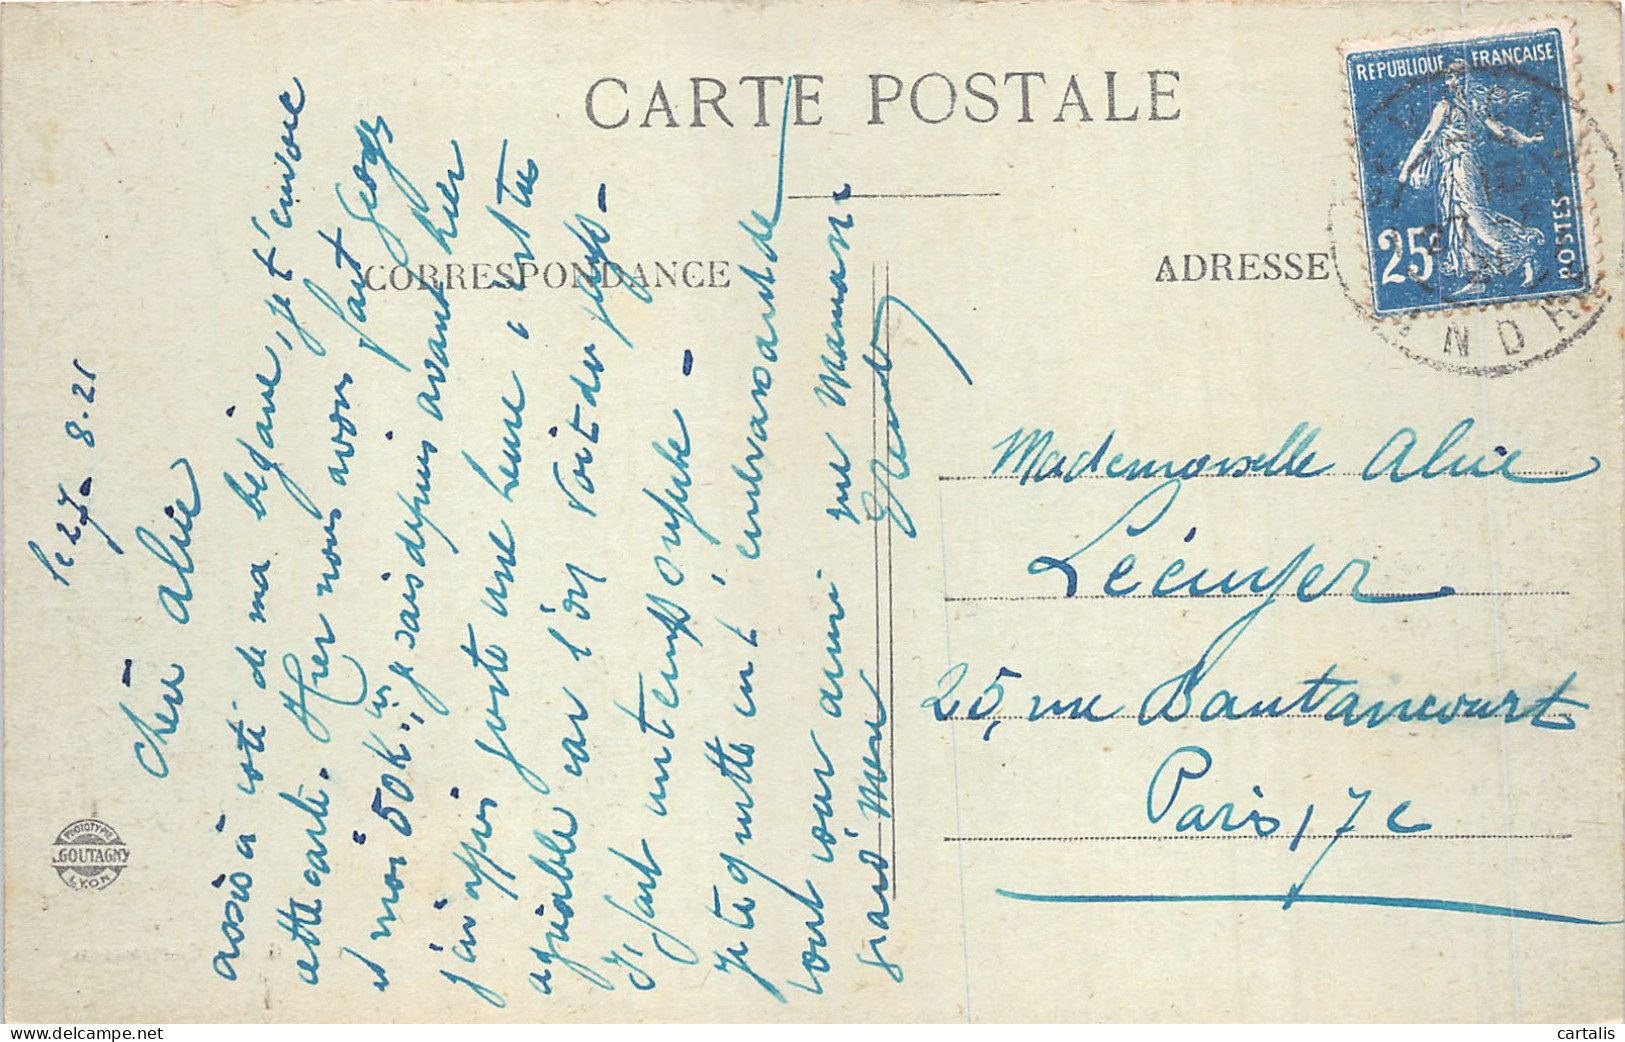 CARTE POSTALE
CORRESPONDANCE
ADRESSE
REPUBLIQUE FRANÇAISE
25c
POSTES
INDRE
27
le 27-8-21
Chère Alice
assis à côté de ma bécane, je t'envoie
cette carte. Hier nous avons fait Georges
et moi 50 k., je vais depuis avant hier
j'ai appris juste une heure, c'est très
agréable car l'on voit du pays-
Il fait un temps superbe-
Je te quitte en t'embrassant de
tout cœur ainsi que Maman
grand Mère
Mademoiselle Alice
Lécuyer
25, rue Dautancourt
Paris, 17e
PHOTOTYPIE
GOUTAGNY
LYON
cartalis